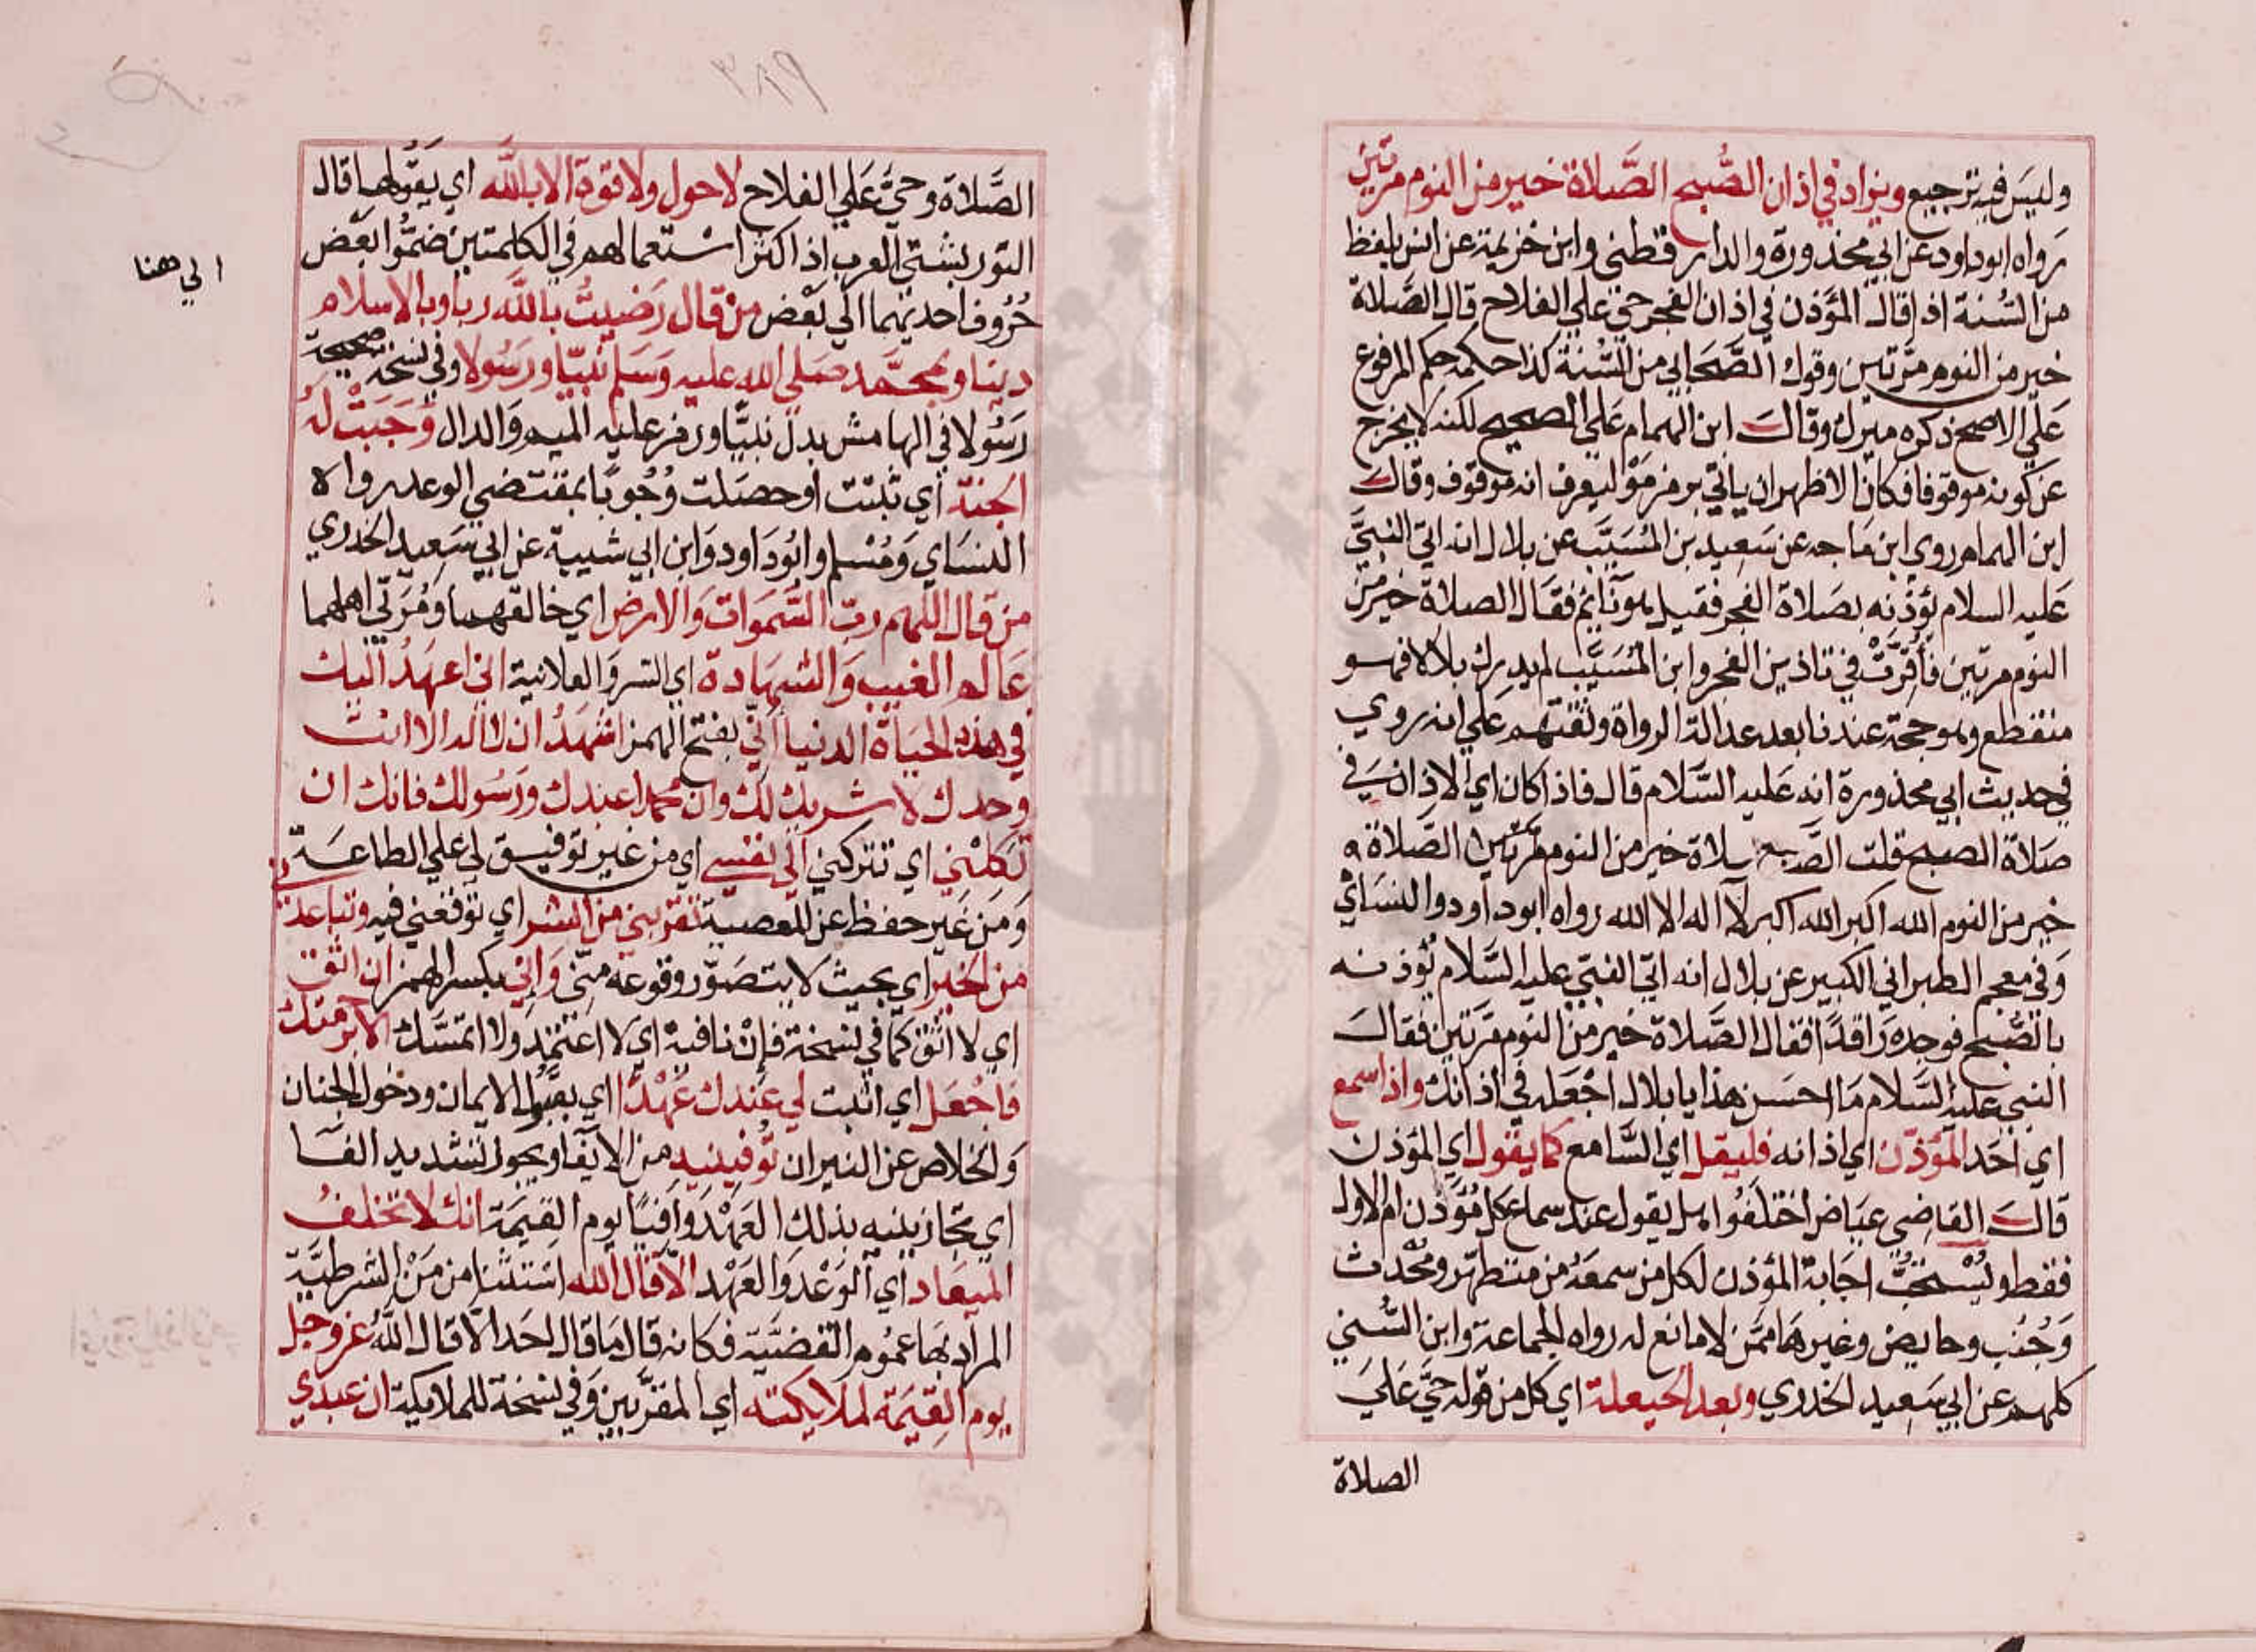 وليس فيه ترجيع ويزاد في اذان الصبح الصلاة خير من النوم مرتين
رواه ابوداود عن ابي محذورة والدارقطني وابن خزيمة عن انس بلفظ
من السنة اذا قال المؤذن في اذان الفجر حي علي الفلاح قال الصلاة
خير من النوم مرتين وقول الصحابي من السنة كذا حكمه حكم المرفوع
علي الاصح ذكره ميرك وقال ابن الهمام علي الصحيح لكنه لا يخرج
عن كونه موقوفا فكان الاظهر ان ياتي برمز مو ليعرف انه موقوف وقال
ابن الهمام روي ابن ماجه عن سعيد بن المُسَيَّب عن بلال انه اتي النبيَّ
عليه السلام يؤذنه بصلاة الفجر فقيل هو نائم فقال الصلاة خير من
النوم مرتين فأقرَّت في تاذين الفجر وابن المُسَيَّب لم يدرك بلالا فهو
منقطع وهو حجة عندنا بعد عدالة الرواة وثقتهم علي انه روي
في حديث ابي محذورة انه عليه السَّلام قال فاذا كان اي الاذان في
صَلاة الصبح قلت الصلاة خير من النوم مرتين الصَّلاة
خير من النوم الله اكبر الله اكبر لا اله الا الله رواه ابوداودوالنسَاي
وَفي معجم الطبراني الكبير عن بلال انه اتي النبيّ عليه السَّلام يؤذنه
بالصُّبح فوجده رَاقدًا فقال الصَّلاة خير من النوم مرّتين فقال
النبي عليه السَّلام مَا احسَن هذا يا بلال اجْعَله في اذانك واذا سمع
اي احَد المؤذّن اي اذانه فليقل اي السَّامع كما يقول اي المؤذن
قال القاضي عيَاض اختلفُوا هل يقول عند سماع كل مُؤذن ام الاول
فقط ويُسْتحَبُّ اجابة المؤذن لكل من سمعَهُ من متطهّر ومُحْدث
وَجُنُب وحايض وغيرهَا ممَّن لا مانع له رواه الجماعة وابن السُّني
كلهم عن ابي سَعِيد الخدري وبعد الحيعلة اي كل من قوله حيَّ عَليَ
الصلاة
الصَّلاة وحيَّ عَلي الفلاح لا حول ولا قوة الا بالله اي يقولها قال
التوربشتي العرب اذا كثر اسْتعمالهم في الكلمتين ضمُّوا بعَض
حُرُوف احديهما الي بَعْض من قال رَضيتُ بالله ربا وبالاسلام
دينا وبمحمَّد صَلى الله عليه وَسَلم نبيّا ورَسُولا وفي نسخة صحيحة
رَسُولا في الهامش بدل نبيًّا ورمز عليه الميم وَالدال وَجَبَتْ لهُ
الجنة اي ثبتت او حصَلت وُجُوبًا بمقتضي الوعد رواه
النسَاي وَمُسْلم وابُودَاود وَابن ابي شيبة عن ابي سَعِيد الخدري
من قال اللهم ربّ السَّموات وَالارض اي خالقهما ومُرَبّي اهلهما
عَالم الغيب وَالشهادة اي السّر وَالعلانية اني اعهَدُ اليك
في هذه الحيَاة الدنيا أنّي بفتح الهمز اشهَدُ ان لا اله الا انت
وحدك لا شريك لك وان محمدا عبدك ورَسُولك فانك ان
تكلْني اي تتركني الي نفسي اي من غير توفيق لي علي الطاعَة
وَمن غَير حفظ عن المعصية تقربني من الشر اي توقعني فيه وتباعدني
من الخير اي بحيث لا يتصَوّر وقوعه منّي وَإنّي بكسر الهمز ان اثق
اي لا اثق كما في نسخة فإنْ نافية اي لا اعتمد ولا اتمسَّك الا برحمتك
فاجْعَل اي اثبت لي عندك عَهْدًا اي بقبُول الايمان ودخول الجنان
وَالخلاص عن النيران تُوفينيه من الايفا ويجوز تشديد الفَا
اي تجازينيه بذلك العَهْد وَافيًا يوم القيمَة انك لا تخلفُ
الميعَاد اي الوَعْد وَالعَهْد الّا قال الله اسْتثنا من مَنْ الشرطيَّة
المراد بهَا عمُوم القضيَّة فكانه قال مَا قال احَد الّا قال اللهُ عز وجل
يوم القِيمَة لملايكته اي المقرَّبين وَفي نسخة للملايكة ان عبدي
الي هنا